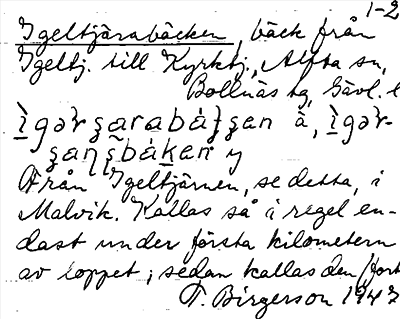 1-2
Igeltjärabäcken, bäck från
Igeltj. till Kyrktj., Alfta sn,
Bollnäs tg, Gävl. l
à, ìgər-
y
Från Igeltjärnen, se detta, i
Malvik. Kallas så i regel en-
dast under första kilometern
av loppet; sedan kallas den (fort
T. Birgerson 1947